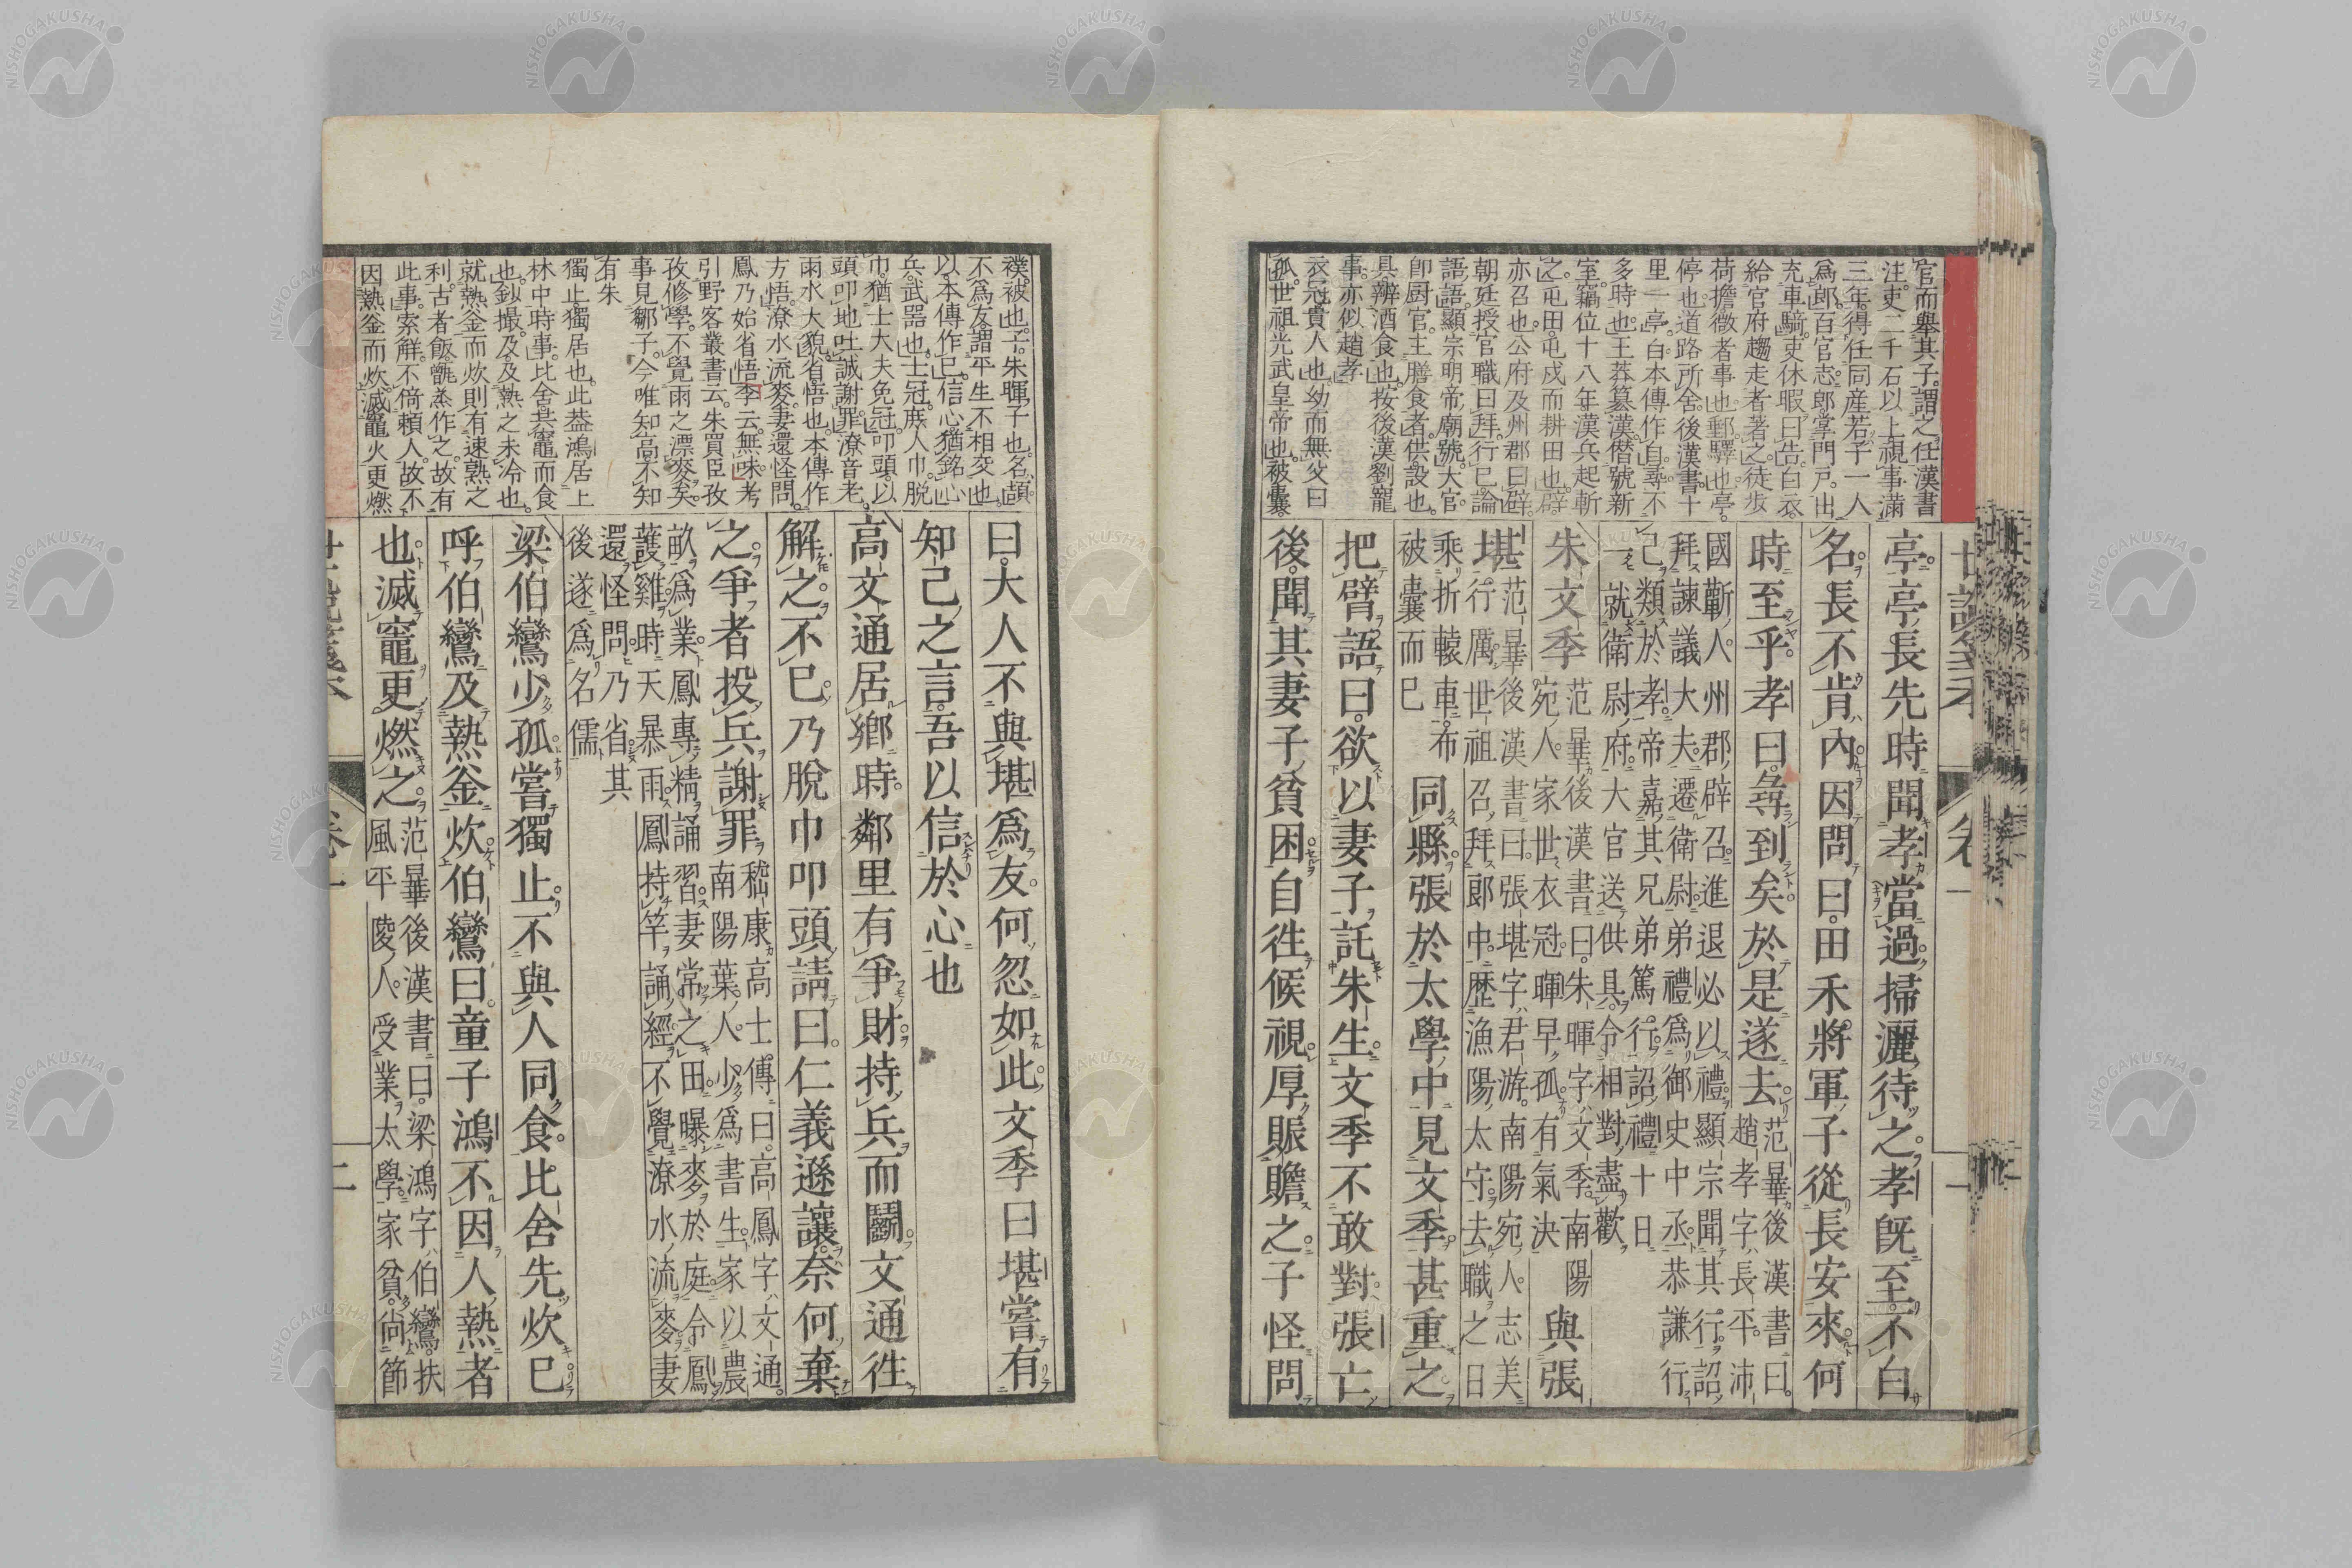 官而舉其子。謂之任漢書
注。吏二千石以上視事滿
三年。得任同産若子一人
爲郎。百官志。郎掌門戸。出
充車騎。吏休暇曰告。白衣。
給官府趨走者。著之。徒歩
荷擔徴者事也。郵驛也。亭。
停也。道路所舍。後漢書十
里一亭。白本傳作自。尋不
多時也。王莽簒漢僣號新
室。竊位十八年漢兵起斬
之。屯田。屯戍而耕田也。辟
亦召也。公府及州郡曰辟。
朝廷授官職曰拜。行己。論
語語。顯宗明帝廟號。大官。
卽厨官。主膳食者。供設也。
具辨酒食也。按後漢劉寵
事。亦似趙孝
衣冠貴人也。幼而無父曰
孤。世祖光武皇帝也。被囊。
亭亭長先時聞孝當過掃灑待之孝旣至不白
名長不肯內因問曰田禾將軍子從長安來何
時至乎孝曰尋到矣於是遂去
范曄後漢書曰。
趙孝字長平。沛
國蘄人。州郡辟召。進退必以禮。顯宗聞其行。詔
拜諫議大夫。遷衛尉。弟禮爲御史中丞。恭謙行
己。類於孝。帝嘉其兄弟篤行。詔禮十日
一就衛尉府。大官送供具。令相對盡歡
朱文季
范曄後漢書曰。朱暉字文季。南陽
宛人。家世衣冠。暉早孤。有氣決
與張
堪
范曄後漢書曰。張堪字君游。南陽宛人。志美
行厲。世祖召拜郞中。歴漁陽太守。去職之日
乘折轅車。布
被囊而已
同縣張於太學中見文季甚重之
把臂語曰。欲以妻子託朱生文季不敢對張亡
後聞其妻子貧困自徃候視厚賑贍之子怪問
襆。被也。子。朱暉子也。名頡。
不爲友。謂平生不相交也。
以。本傳作已。信心猶銘心
兵。武器也。士冠。庶人巾。脫
巾。猶士大夫免冠。叩頭。以
頭叩地。吐誠謝罪。潦音老。
雨水大貌。省悟也。本傳作
方悟。潦水流麥。妻還怪問。
鳳乃始省悟李云。無味。考
引野客叢書云。朱買臣孜
孜修學。不覺雨之漂麥矣。
事見鄒子。今唯知高不知
有朱
獨止。獨居也。此葢鴻居上
林中時事。比舍共竈而食
也。釥撮。及及熱之未冷也。
就熱釜而炊。則有速熟之
利。古者飯甑蒸作之。故有
此事。索觧。不倚賴人。故不
因熱釜而炊。滅竈火更燃
曰。大人不與堪爲友。何忽如此文季曰堪嘗有
知己之言。吾以信於心也
高文通居鄉時鄰里有爭財持兵而鬭文通徃
解之不已乃脫巾叩頭請曰。仁義遜讓奈何棄
之爭者投兵謝罪
嵇康高士傳曰。高鳳字文通。
南陽葉人。少爲書生。家以農
畝爲業。鳳專精誦習。妻常之田。曝麥於庭。令鳳
護雞。時天暴雨。鳳持竿誦經。不覺潦水流麥。妻
還怪問。乃省。其
後遂爲名儒
梁伯鸞少孤嘗獨止不與人同食。比舍先炊已
呼伯鸞及熱釜炊伯鸞曰。童子鴻不因人熱者
也滅竈更燃之
范曄後漢書曰。梁鴻字伯鸞。扶
風平陵人。受業太學。家貧尙節
卷一
二